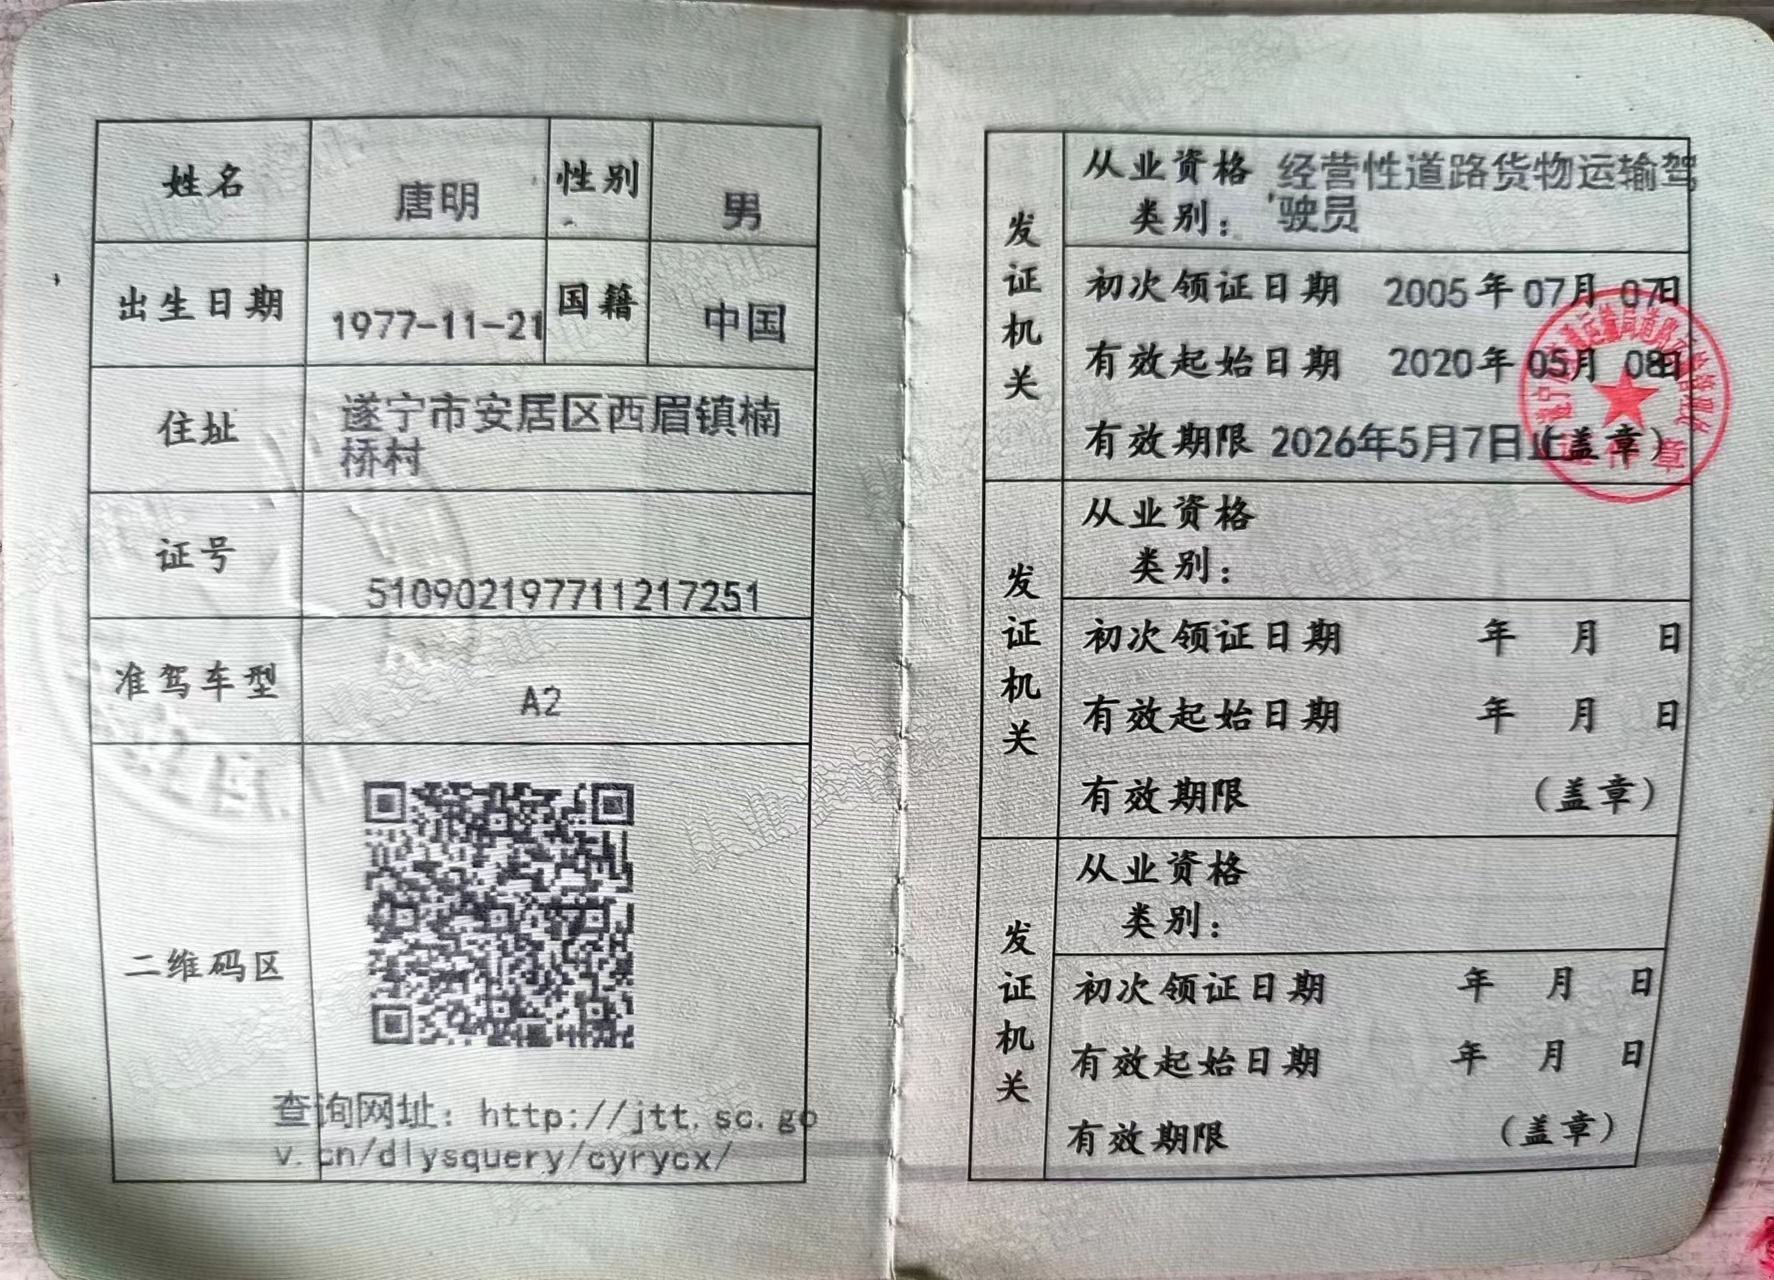 姓名
唐明
性别
男
出生日期
1977-11-21
国籍
中国
住址
遂宁市安居区西眉镇楠
桥村
证号
510902197711217251
准驾车型
A2
二维码区
查询网址：http://jtt.sc.go
v.cn/dlysquery/cyrycx/
发证机关
从业资格 经营性道路货物运输驾
类别： 驶员
初次领证日期 2005年07月07日
有效起始日期 2020年05月08日
有效期限 2026年5月7日止（盖章）
发证机关
从业资格
类别：
初次领证日期 年 月 日
有效起始日期 年 月 日
有效期限 （盖章）
发证机关
从业资格
类别：
初次领证日期 年 月 日
有效起始日期 年 月 日
有效期限 （盖章）